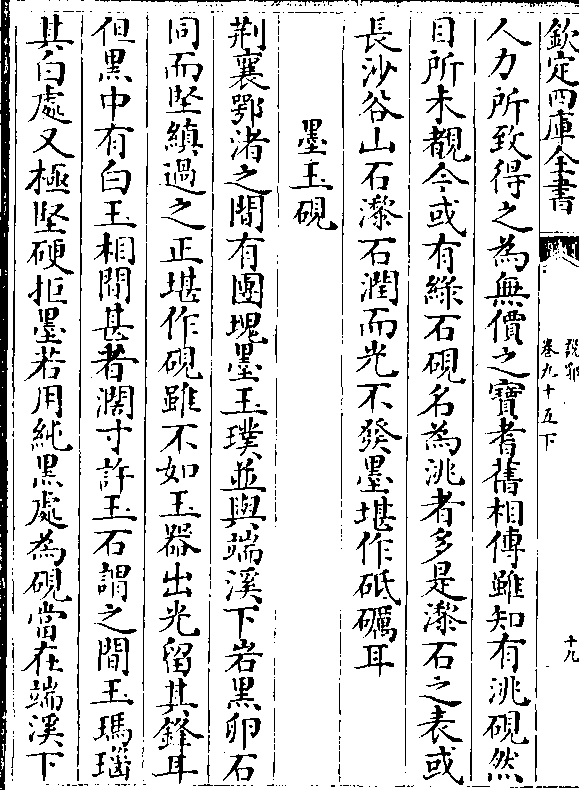 欽定四庫全書
說郛
卷九十五下
十九
人力所致得之為無價之寶耆舊相傳雖知有洮硯然
目所未覩今或有綠石硯名為洮者多是灤石之表或
長沙谷山石灤石潤而光不發墨堪作砥礪耳
墨玉硯
荆襄鄂渚之間有團塊墨玉璞並與端溪下岩黑卵石
同而堅縝過之正堪作硯雖不如玉器出光留其鋒耳
但黑中有白玉相間甚者濶寸許玉石謂之間玉瑪瑙
其白處又極堅硬拒墨若用純黑處為硯當在端溪下